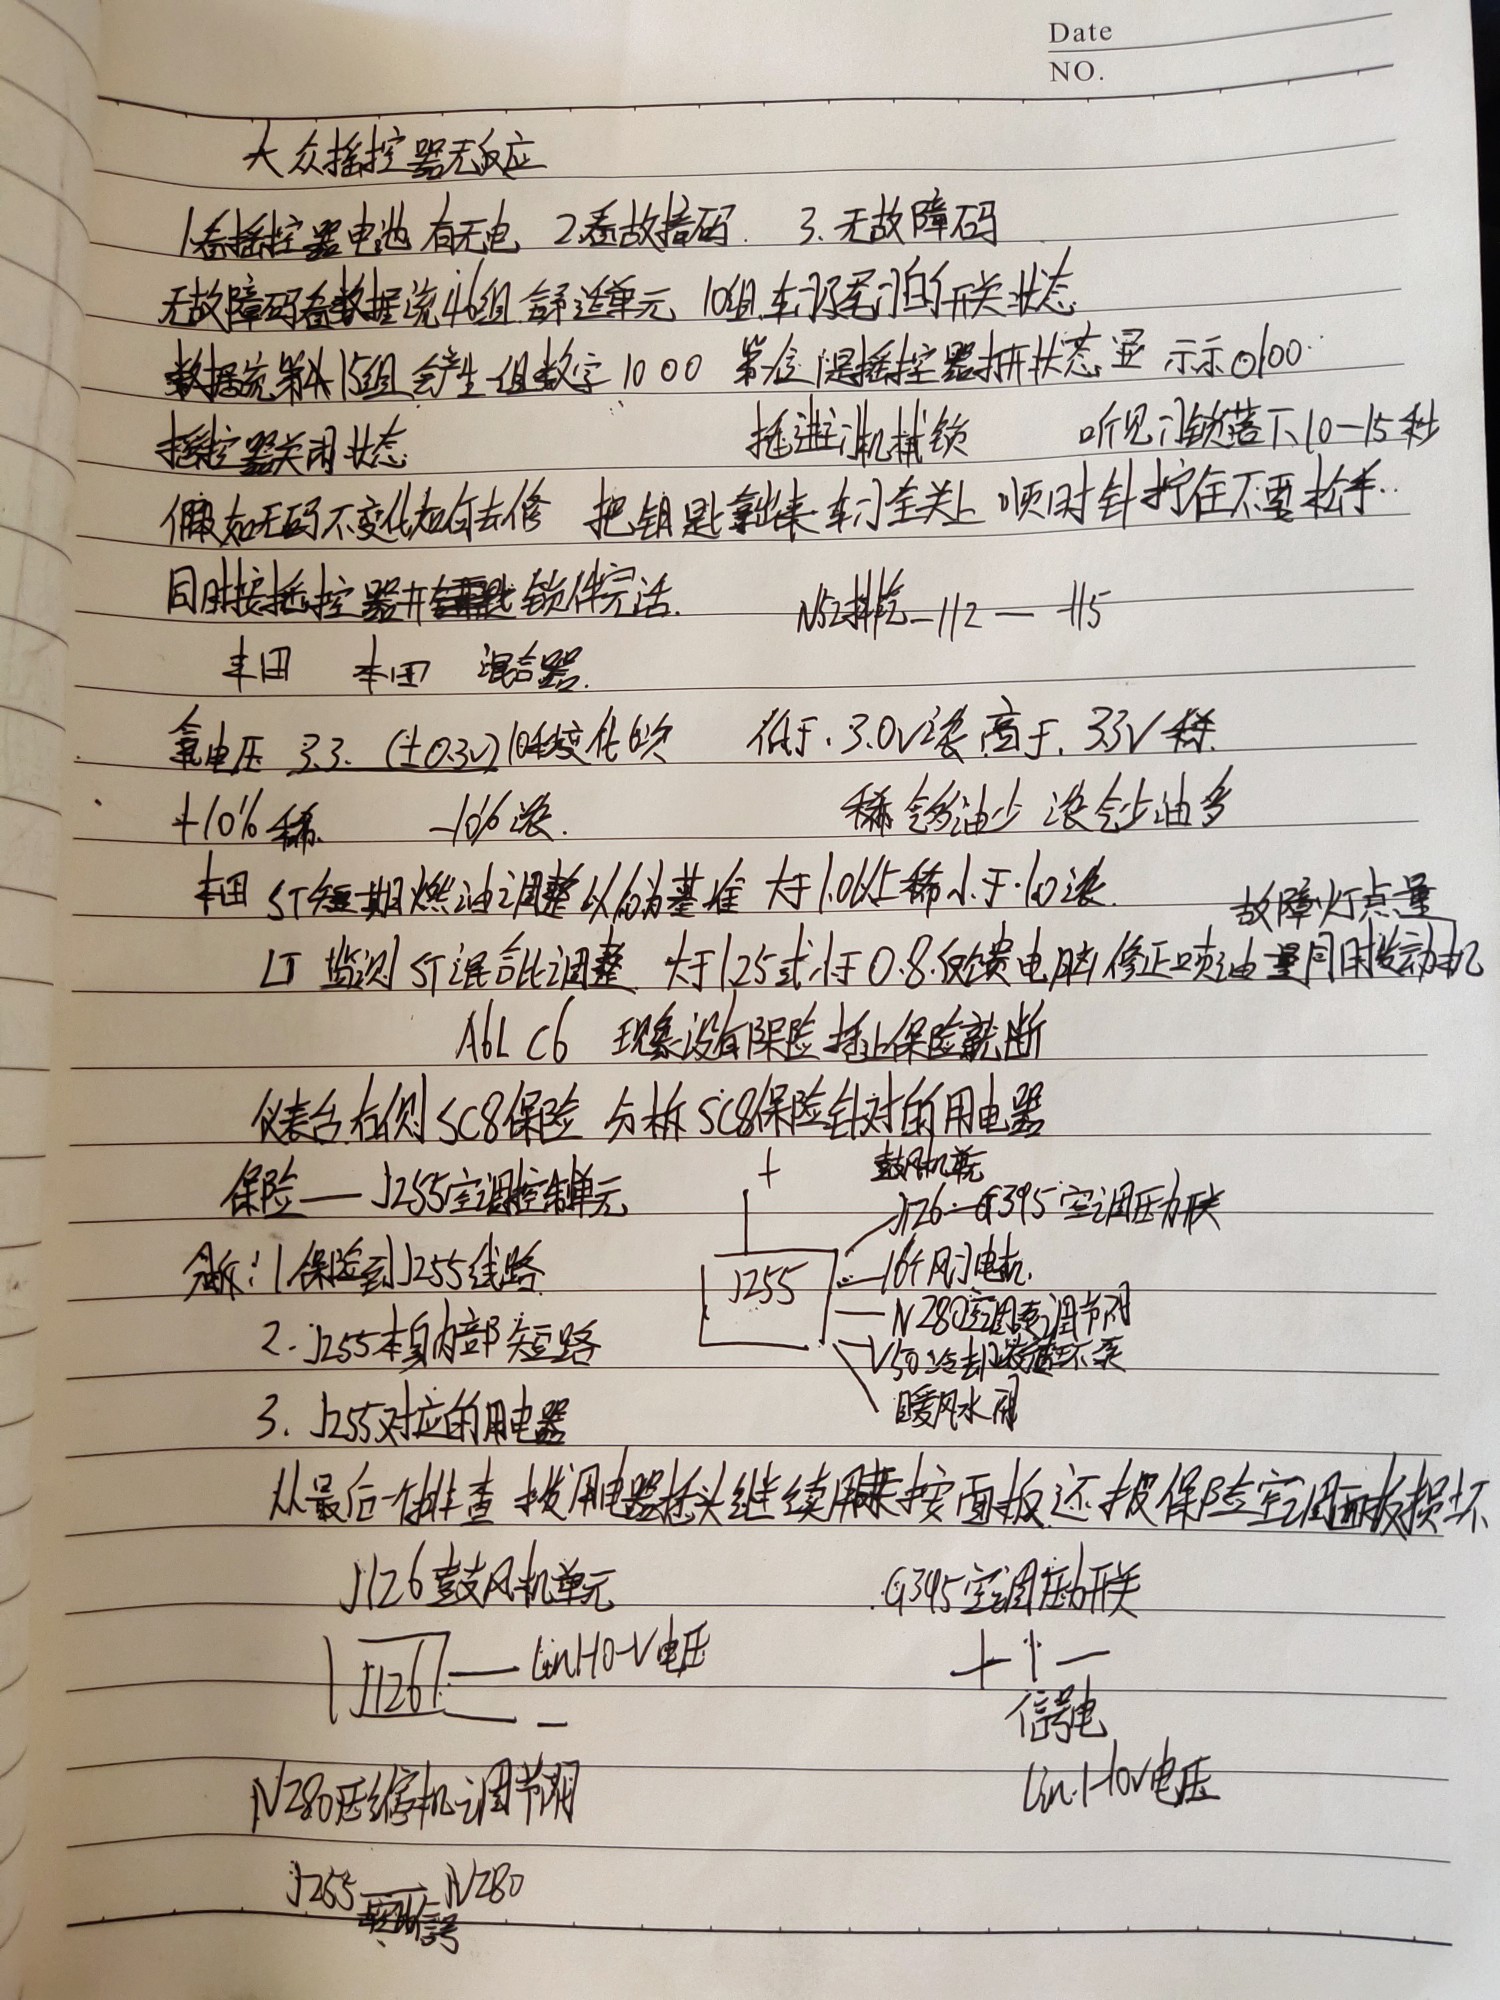 Date
NO.
大众摇控器无反应
1看摇控器电池 有无电 2.看故障码. 3.无故障码
无故障码看数据流46组舒适单元 10组.车门及尾门的开关状态
数据流第 15组会产生一组数字1000 第一位1是摇控器打开状态 显示0100
摇控器关闭状态 插进门机械锁 听见门锁落下10-15秒
假如无码不变化如何去修 把钥匙拿出来.车门全关上 顺时针拧住不要松手..
同时按摇控器开 锁件完活. N52排气-112— 115
丰田 本田 混合器.
氧电压 3.3. (±0.3V)10秒变化6次 低于.3.0V浓 高于.3.3V稀.
+10%稀. -10%浓. 稀 气多油少 浓气少油多
本田 ST短期燃油调整以1.0为基准 大于1.0以上稀 小于1.0浓.
故障灯点量
LT 监测ST混合比调整 大于1.25或小于0.8.反馈电脑修正喷油量同时发动机
A6L C6 现象没有保险 插上保险就断
仪表台右侧SC8保险 分析SC8保险针对的用电器
保险—J255空调控制单元 + 鼓风机单元
J126-G395空调压力开关
分析:1保险到J255线路. J255 16个风门电机.
N280空调泵调节阀
2.J255本身内部短路 V50冷却液循环泵
3.J255对应的用电器 暖风水阀
从最后一个排查 拔用电器插头继续用来按面板 还报保险空调面板损坏
J126鼓风机单元 G395空调压力开关
J126 — Lin1-10-V电压 + ↑ —
— 信号电
N280压缩机调节阀 Lin.1-10V电压
J255—N280
信号